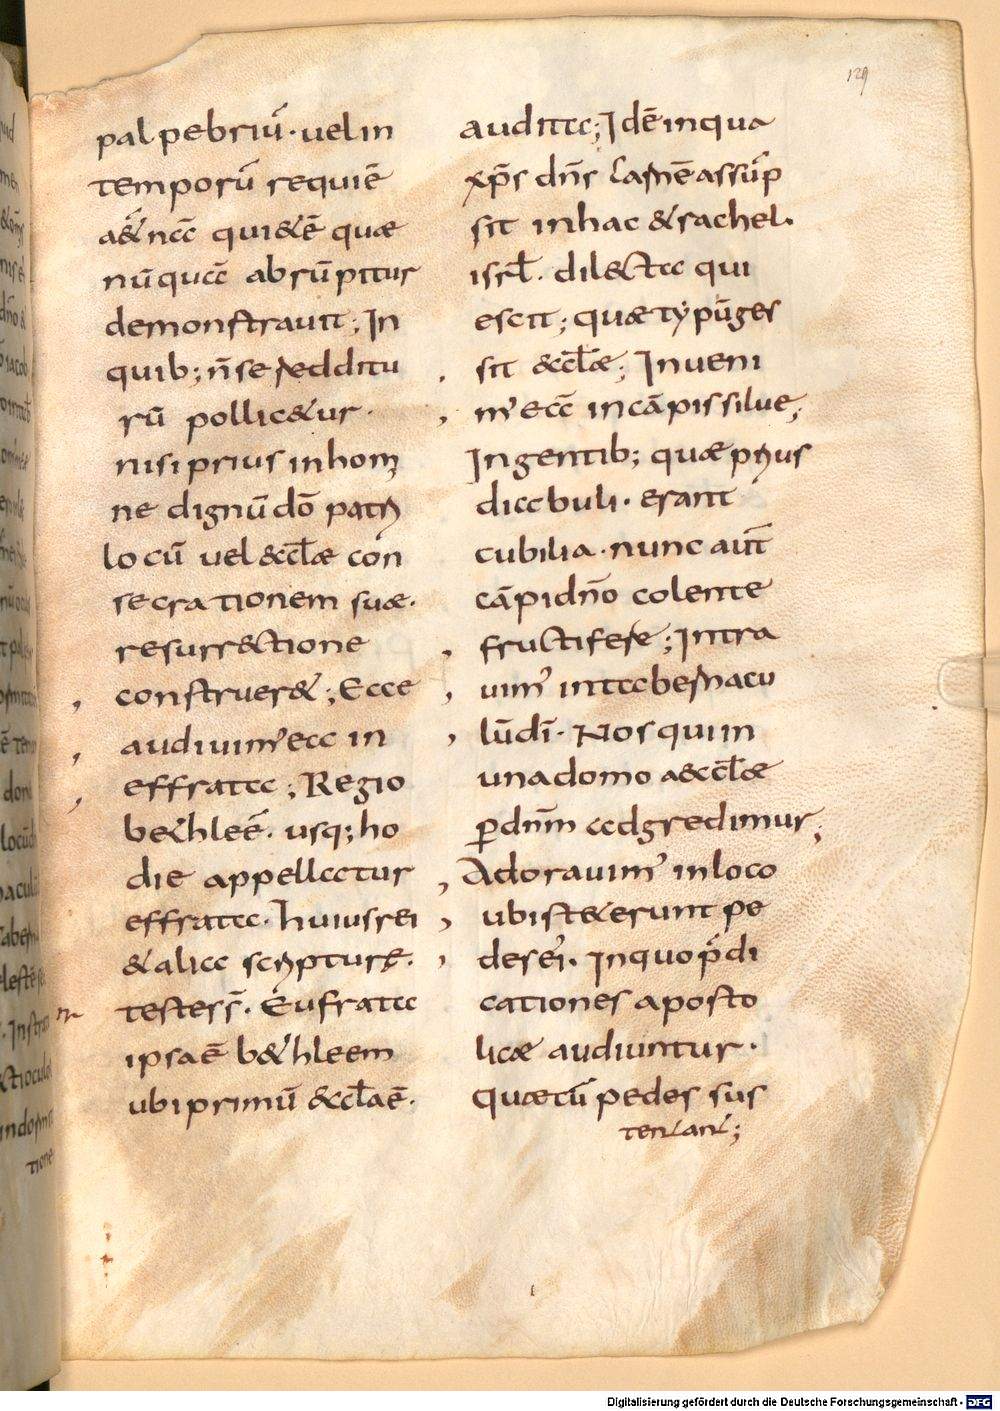 129
palpebriū· uel in
temporū requiē
a& nec̄ qui&ē quæ
nūquā abrūpitur
demonstrauit; In
quib; n̄ se redditu
rū pollic&ur·
nisi prius in homi
ne dignū dō patri
locū uel &ccl̄æ con
secrationem suæ·
resurrectione
construer&; Ecce
audiuim' ea in
effrata; Regio
b&hleē· usq; ho
die appellatur
effrata· huius rei
& alia scripturę·
testes s̄· Eufrata
ipsa ē b&hleem
ubi primū &ccl̄a ē·
audita; Idē in qua
xp̄s dn̄s carnē assūp
sit in hac & rachel·
isrl̄· dilecta qui
escit; quæ typū ges
sit &ccl̄æ; Inueni
m' ea in cāpis silue;
In gentib; quæ prius
diabuli· erant
cubilia· nunc aut̄
cāpi dn̄o colente
fructifere; Intra
uim' in tabernacu
lū dī· Nos qui in
una domo a&ccl̄æ
ꝑ dn̄m adgredimur;
Adorauim' in loco
ubi st&erunt pe
des ei'· In quo p̄di
cationes aposto
licæ audiuntur·
quæ cū pedes sus
tentant;
Digitalisierung gefördert durch die Deutsche Forschungsgemeinschaft - DFG